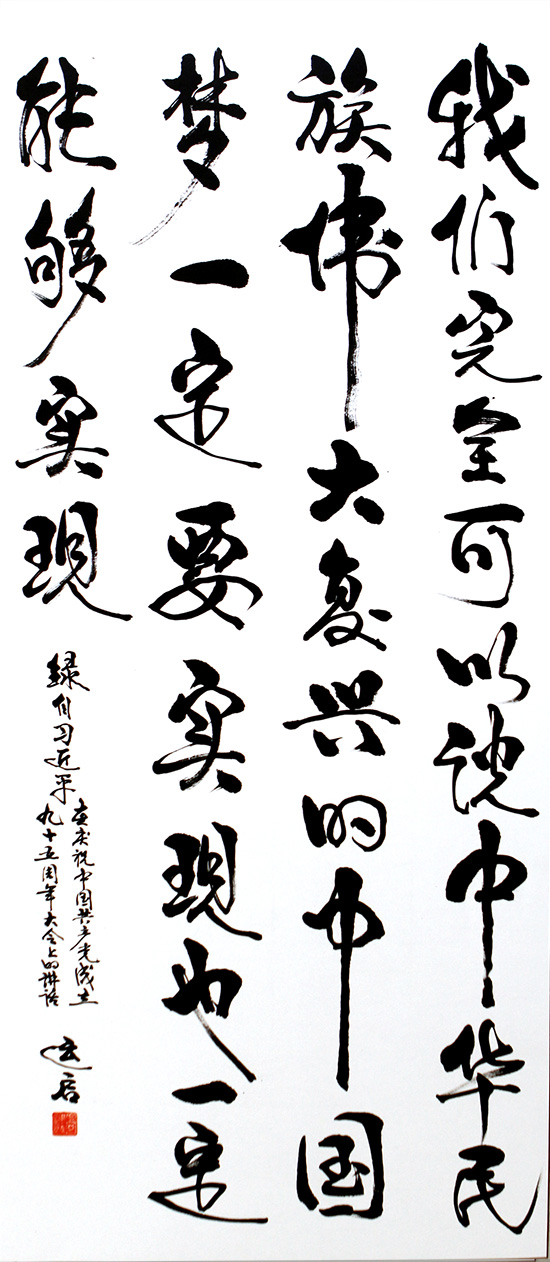 我们完全可以说中华民
族伟大复兴的中国
梦一定要实现也一定
能够实现
録自习近平
在庆祝中国共产党成立
九十五周年大会上的讲话